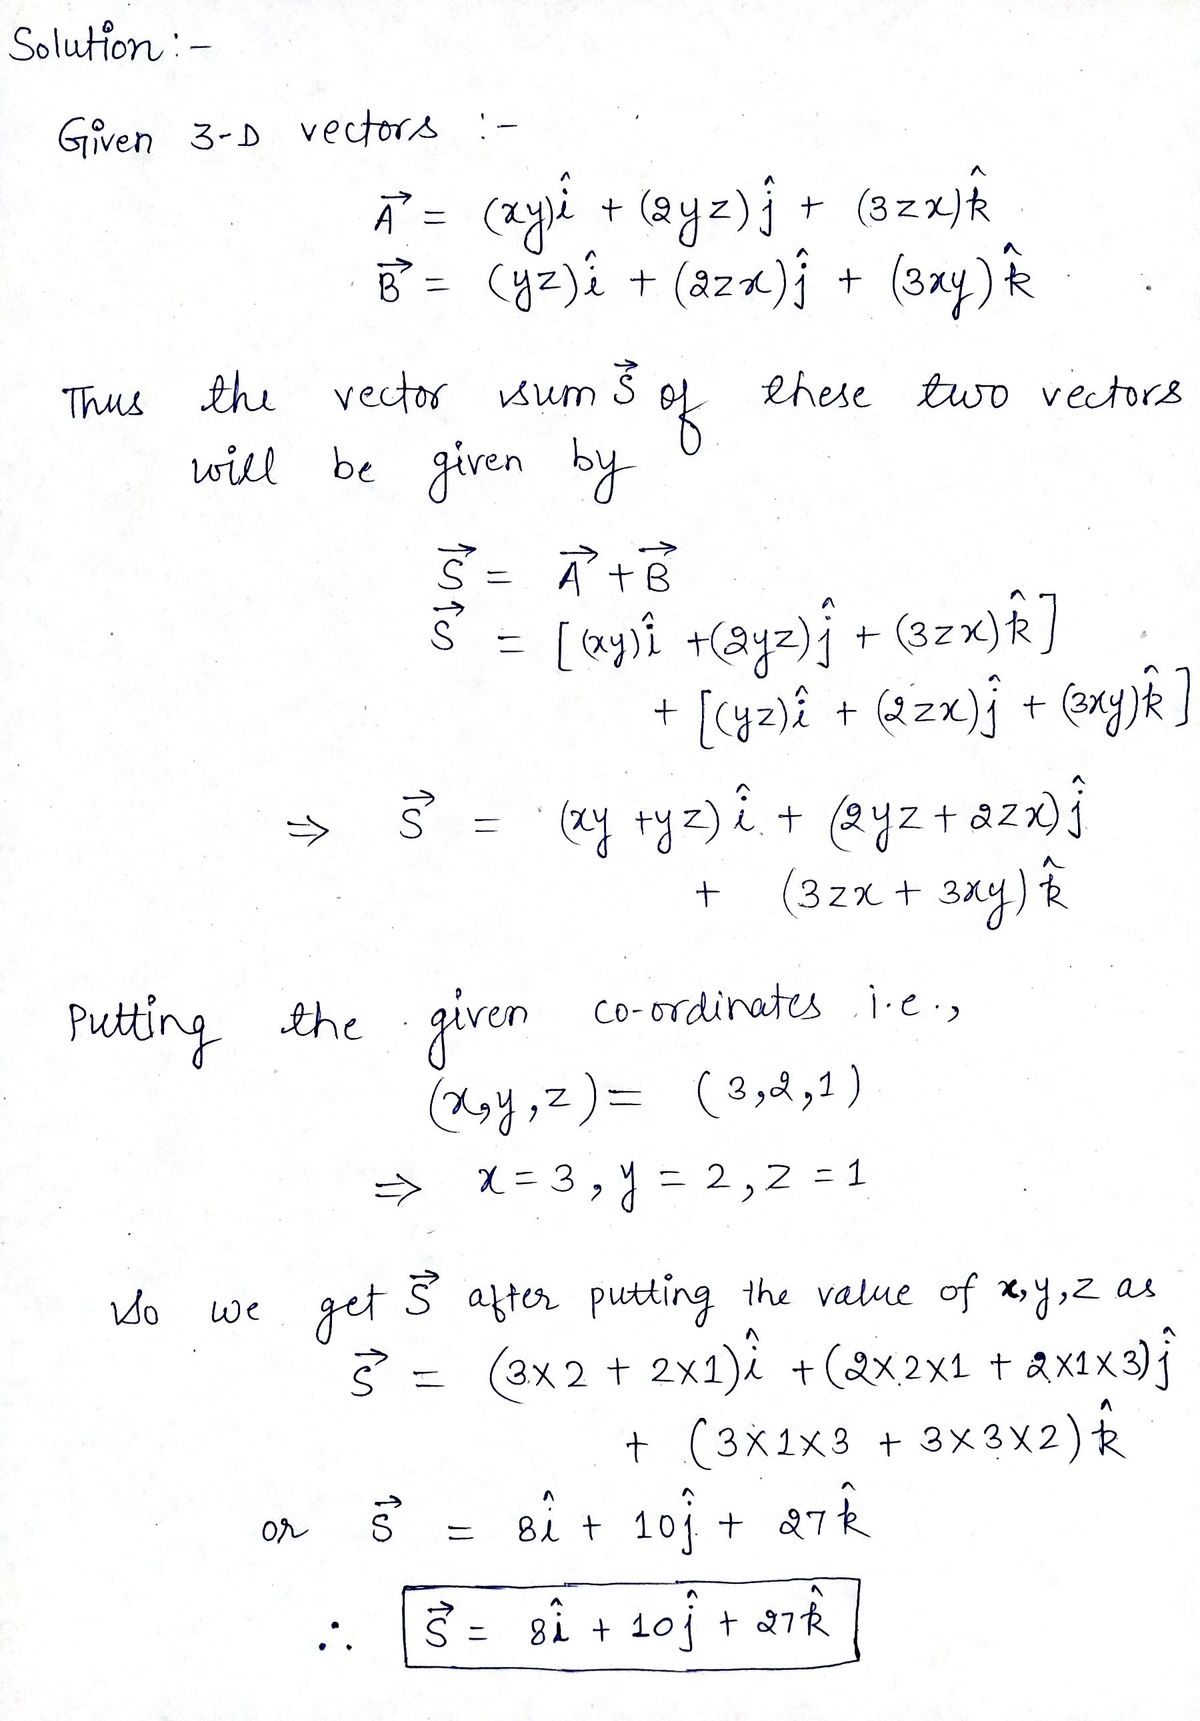 Solution :-
Given 3-D vectors :-
A⃗ = (xy)î + (2yz)ĵ + (3zx)k̂
B⃗ = (yz)î + (2zx)ĵ + (3xy)k̂
Thus the vector sum S⃗ of these two vectors
will be given by
S⃗ = A⃗ + B⃗
S⃗ = [(xy)î + (2yz)ĵ + (3zx)k̂]
+ [(yz)î + (2zx)ĵ + (3xy)k̂]
⇒ S⃗ = (xy + yz)î + (2yz + 2zx)ĵ
+ (3zx + 3xy)k̂
Putting the given co-ordinates i.e.,
(x,y,z) = (3,2,1)
⇒ x = 3, y = 2, z = 1
So we get S⃗ after putting the value of x,y,z as
S⃗ = (3×2 + 2×1)î + (2×2×1 + 2×1×3)ĵ
+ (3×1×3 + 3×3×2)k̂
or S⃗ = 8î + 10ĵ + 27k̂
∴ S⃗ = 8î + 10ĵ + 27k̂